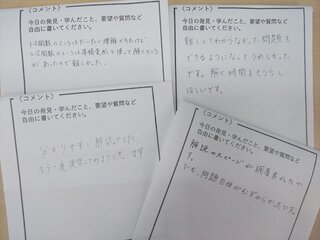 〈コメント〉
今日の発見・学んだこと、要望や質問など
自由に書いてください。
1次関数のところはだいたい理解できたけど、
2次関数のところは等積変形も使って解くところが
あったので難しかった。
〈コメント〉
今日の発見・学んだこと、要望や質問など
自由に書いてください。
難しくてわからなかった問題も
できるようになってうれしかった
です。解く時間をもう少し
ほしいです。
〈コメント〉
今日の発見・学んだこと、要望や質問など
自由に書いてください。
分かりやすい解説でした。
もう一度復習してみようと思います。
〈コメント〉
今日の発見・学んだこと、要望や質問など
自由に書いてください。
解説のスピードが
です。
でも、問題自体がむずかしかったです。